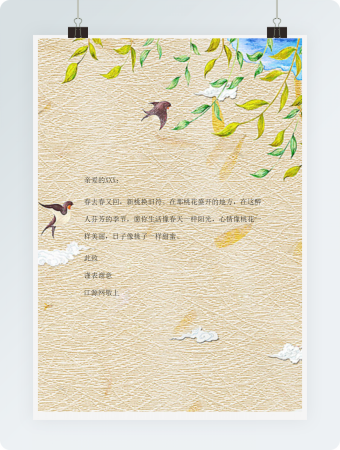 亲爱的XXX:
春去春又回，新桃换旧符。在那桃花盛开的地方，在这醉
人芬芳的季节，愿你生活像春天一样阳光，心情像桃花一
样美丽，日子像桃子一样甜蜜。
此致
谨表谢意